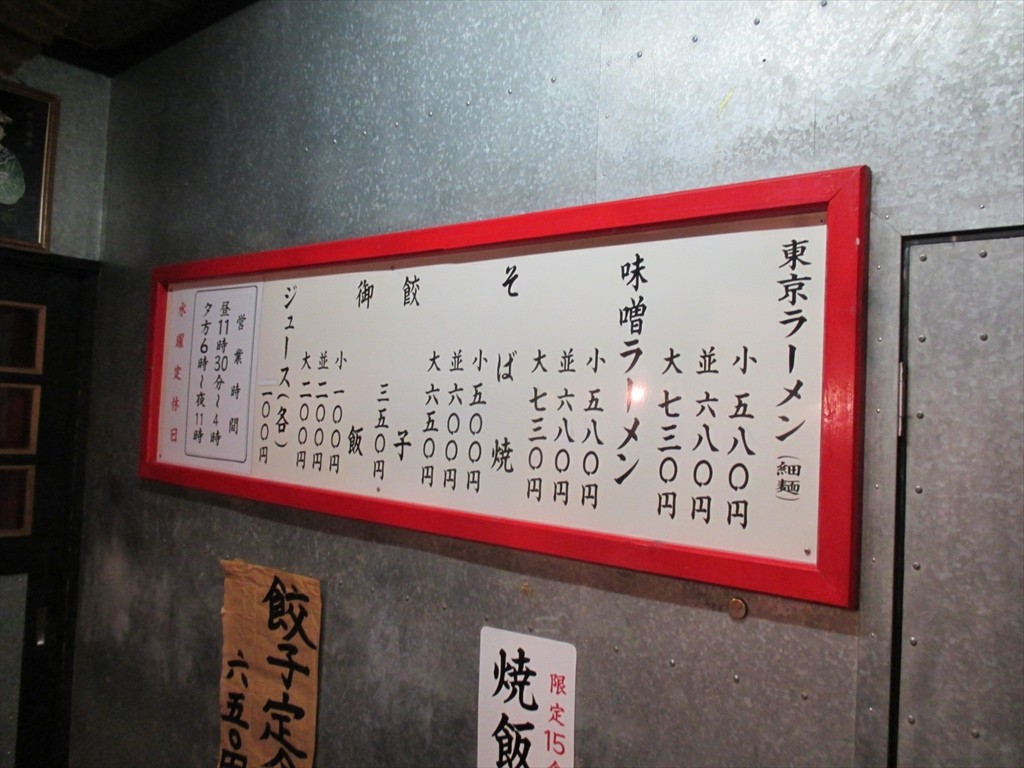 東京ラーメン(細麺)
小 五八〇円
並 六八〇円
大 七三〇円
味噌ラーメン
小 五八〇円
並 六八〇円
大 七三〇円
そば焼
小 五〇〇円
並 六〇〇円
大 六五〇円
餃子
三五〇円
御飯
小 一〇〇円
並 二〇〇円
大 二〇〇円
ジュース(各)
二〇〇円
営業時間
昼11時30分~4時
夕方6時~夜11時
水曜定休日
餃子定
六五〇円
限定15
焼飯